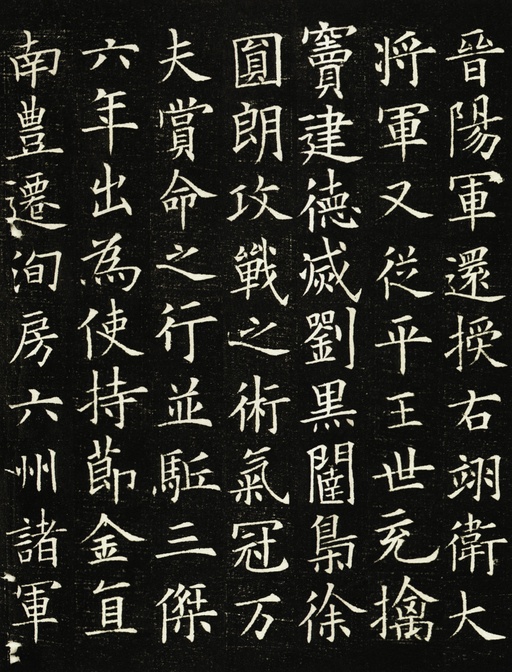 晉陽軍還授右翊衛大
將軍又從平王世充擒
竇建德滅劉黑闥梟徐
圓朗攻戰之術氣冠万
夫賞命之行並駈三傑
六年出為使持節金直
南豊遷洵房六州諸軍